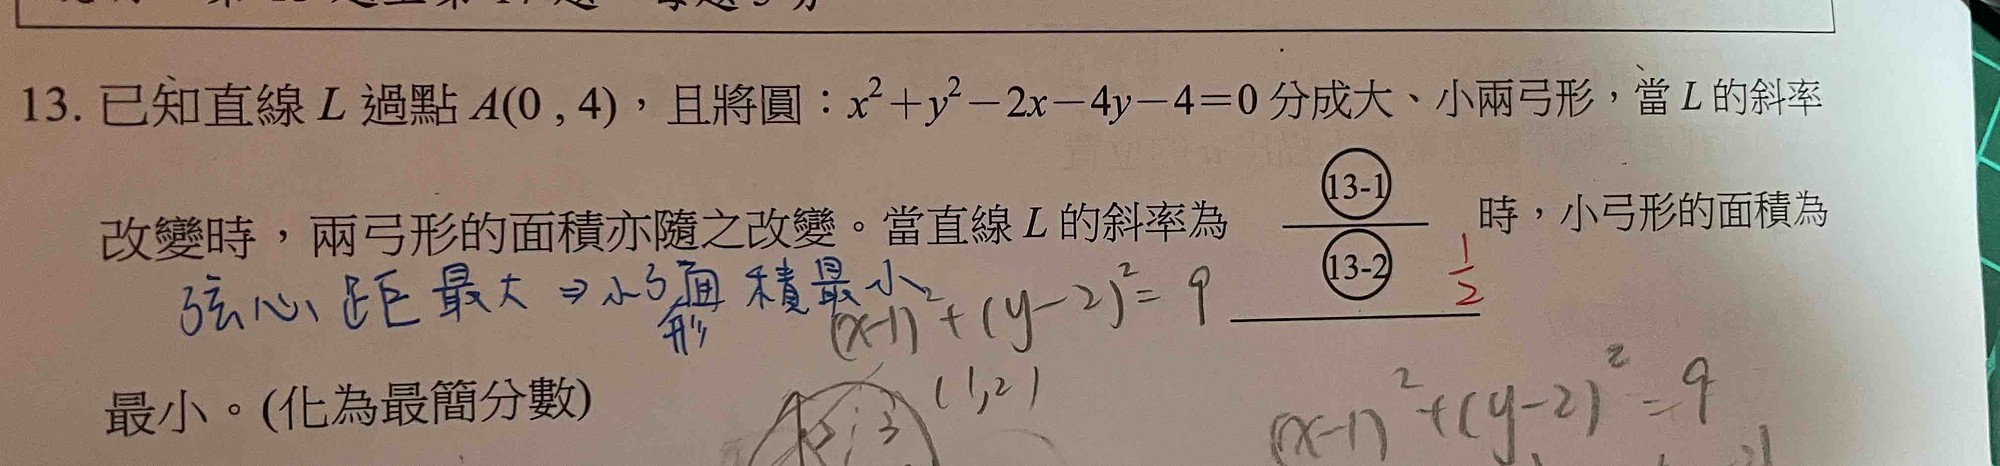 13. 已知直線 L 過點 A(0 , 4)，且將圓：x²＋y²－2x－4y－4＝0 分成大、小兩弓形，當 L 的斜率
13-1
改變時，兩弓形的面積亦隨之改變。當直線 L 的斜率為 時，小弓形的面積為
13-2
1/2
弦心距最大 ⇒ 小弓形面積最小
(x-1)²+(y-2)²=9
最小。(化為最簡分數)
(1,2)
3
(x-1)²+(y-2)²=9